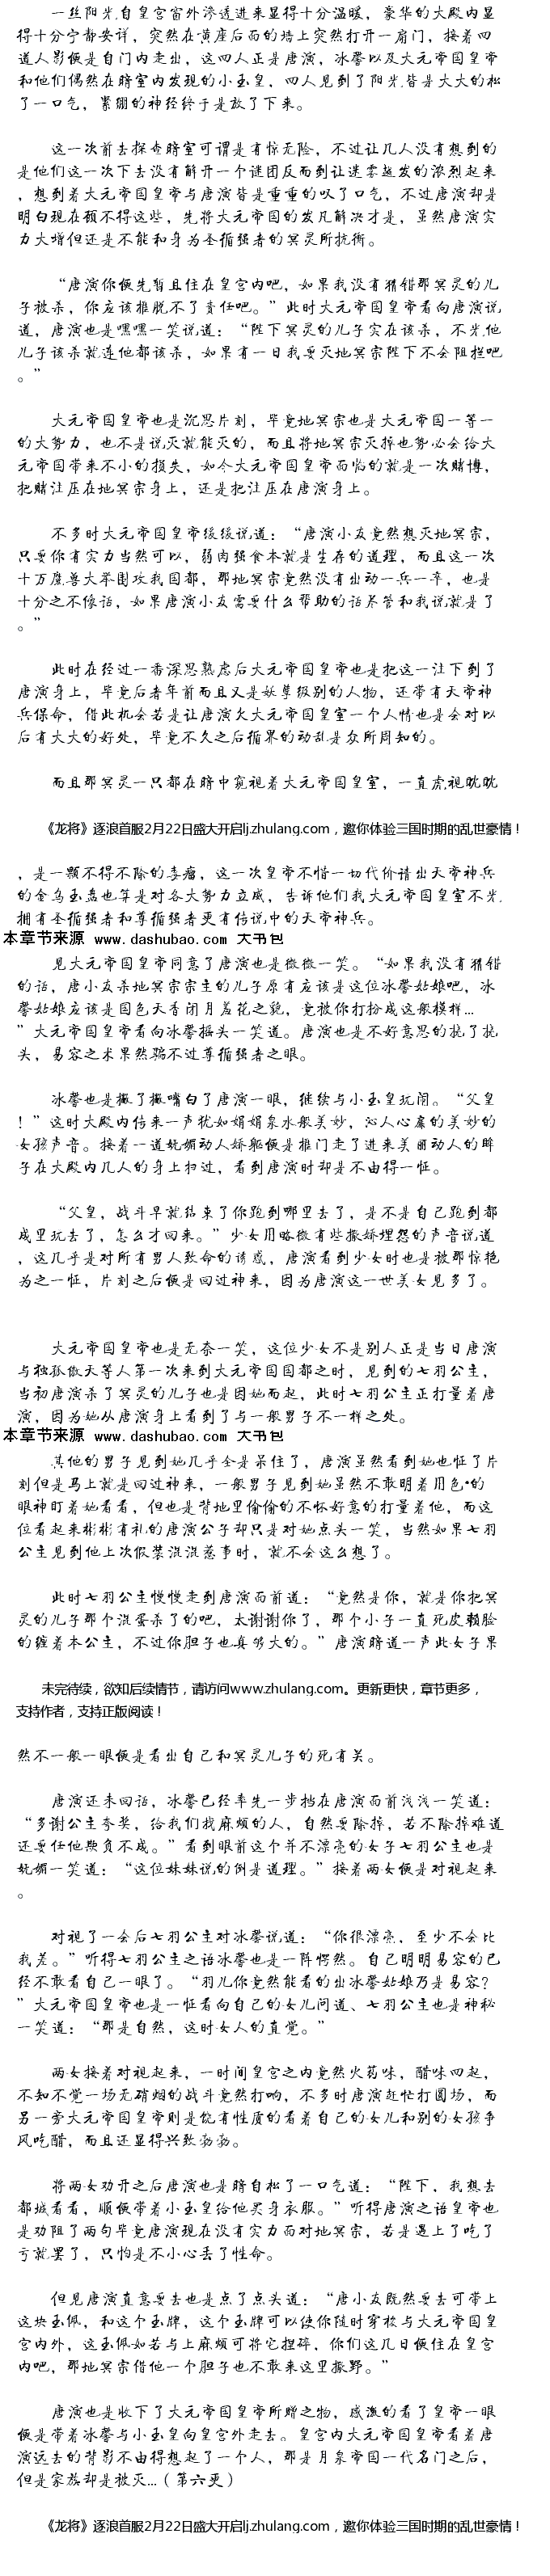 一丝阳光自皇宫窗外渗透进来显得十分温暖，豪华的大殿内显
得十分宁静安详，突然在黄座后面的墙上突然打开一扇门，接着四
道人影便是自门内走出，这四人正是唐演，冰馨以及大元帝国皇帝
和他们偶然在暗室内发现的小玉皇，四人见到了阳光皆是大大的松
了一口气，紧绷的神经终于是放了下来。
这一次前去探查暗室可谓是有惊无险，不过让几人没有想到的
是他们这一次下去没有解开一个谜团反而到让迷雾越发的浓烈起来
，想到着大元帝国皇帝与唐演皆是重重的叹了口气，不过唐演却是
明白现在顾不得这些，先将大元帝国的麻烦解决才是，虽然唐演实
力大增但还是不能和身为圣循强者的冥灵所抗衡。
“唐演你便先暂且住在皇宫内吧，如果我没有猜错那冥灵的儿
子被杀，你应该推脱不了责任吧。”此时大元帝国皇帝看向唐演说
道，唐演也是嘿嘿一笑说道：“陛下冥灵的儿子实在该杀，不光他
儿子该杀就连他都该杀，如果有一日我要灭地冥宗陛下不会阻拦吧
。”
大元帝国皇帝也是沉思片刻，毕竟地冥宗也是大元帝国一等一
的大势力，也不是说灭就能灭的，而且将地冥宗灭掉也势必会给大
元帝国带来不小的损失，如今大元帝国皇帝面临的就是一次赌博，
把赌注压在地冥宗身上，还是把注压在唐演身上。
不多时大元帝国皇帝缓缓说道：“唐演小友竟然想灭地冥宗，
只要你有实力当然可以，弱肉强食本就是生存的道理，而且这一次
十万魔兽大举围攻我国都，那地冥宗竟然没有出动一兵一卒，也是
十分之不像话，如果唐演小友需要什么帮助的话尽管和我说就是了
。”
此时在经过一番深思熟虑后大元帝国皇帝也是把这一注下到了
唐演身上，毕竟后者年前而且又是妖孽级别的人物，还带有天帝神
兵保命，借此机会若是让唐演欠大元帝国皇室一个人情也是会对以
后有大大的好处，毕竟不久之后循界的动乱是众所周知的。
而且那冥灵一只都在暗中窥视着大元帝国皇室，一直虎视眈眈
《龙将》逐浪首服2月22日盛大开启lj.zhulang.com，邀你体验三国时期的乱世豪情！
，是一颗不得不除的毒瘤，这一次皇帝不惜一切代价请出天帝神兵
的金乌玉盏也算是对各大势力立威，告诉他们我大元帝国皇室不光
拥有圣循强者和尊循强者更有传说中的天帝神兵。
本章节来源 www.dashubao.com 大书包
见大元帝国皇帝同意了唐演也是微微一笑。“如果我没有猜错
的话，唐小友杀地冥宗宗主的儿子原有应该是这位冰馨姑娘吧，冰
馨姑娘应该是国色天香闭月羞花之貌，竟被你打扮成这般模样...
”大元帝国皇帝看向冰馨摇头一笑道。唐演也是不好意思的挠了挠
头，易容之术果然骗不过尊循强者之眼。
冰馨也是撇了撇嘴白了唐演一眼，继续与小玉皇玩闹。“父皇
！”这时大殿内传来一声犹如娟娟泉水般美妙，沁人心扉的美妙的
女孩声音。接着一道妩媚动人娇躯便是推门走了进来美丽动人的眸
子在大殿内几人的身上扫过，看到唐演时却是不由得一怔。
“父皇，战斗早就结束了你跑到哪里去了，是不是自己跑到都
城里玩去了，怎么才回来。”少女用略微有些撒娇埋怨的声音说道
，这几乎是对所有男人致命的诱惑，唐演看到少女时也是被那惊艳
为之一怔，片刻之后便是回过神来，因为唐演这一世美女见多了。
大元帝国皇帝也是无奈一笑，这位少女不是别人正是当日唐演
与独孤傲天等人第一次来到大元帝国国都之时，见到的七羽公主，
当初唐演杀了冥灵的儿子也是因她而起，此时七羽公主正打量着唐
演，因为她从唐演身上看到了与一般男子不一样之处。
本章节来源 www.dashubao.com 大书包
其他的男子见到她几乎全是呆住了，唐演虽然看到她也怔了片
刻但是马上就是回过神来，一般男子见到她虽然不敢明着用色*的
眼神盯着她看看，但也是背地里偷偷的不怀好意的打量着他，而这
位看起来彬彬有礼的唐演公子却只是对她点头一笑，当然如果七羽
公主见到他上次假装混混惹事时，就不会这么想了。
此时七羽公主慢慢走到唐演面前道：“竟然是你，就是你把冥
灵的儿子那个混蛋杀了的吧，太谢谢你了，那个小子一直死皮赖脸
的缠着本公主，不过你胆子也真够大的。”唐演暗道一声此女子果
未完待续，欲知后续情节，请访问www.zhulang.com。更新更快，章节更多，
支持作者，支持正版阅读！
然不一般一眼便是看出自己和冥灵儿子的死有关。
唐演还未回话，冰馨已经率先一步挡在唐演面前浅浅一笑道：
“多谢公主夸奖，给我们找麻烦的人，自然要除掉，若不除掉难道
还要任他欺负不成。”看到眼前这个并不漂亮的女子七羽公主也是
妩媚一笑道：“这位妹妹说的倒是道理。”接着两女便是对视起来
。
对视了一会后七羽公主对冰馨说道：“你很漂亮，至少不会比
我差。”听得七羽公主之语冰馨也是一阵愕然。自己明明易容的已
经不敢看自己一眼了。“羽儿你竟然能看的出冰馨姑娘乃是易容？
”大元帝国皇帝也是一怔看向自己的女儿问道、七羽公主也是神秘
一笑道：“那是自然，这时女人的直觉。”
两女接着对视起来，一时间皇宫之内竟然火药味，醋味四起，
不知不觉一场无硝烟的战斗竟然打响，不多时唐演赶忙打圆场，而
另一旁大元帝国皇帝则是饶有性质的看着自己的女儿和别的女孩争
风吃醋，而且还显得兴致勃勃。
将两女劝开之后唐演也是暗自松了一口气道：“陛下，我想去
都城看看，顺便带着小玉皇给他买身衣服。”听得唐演之语皇帝也
是劝阻了两句毕竟唐演现在没有实力面对地冥宗，若是遇上了吃了
亏就罢了，只怕是不小心丢了性命。
但见唐演直意要去也是点了点头道：“唐小友既然要去可带上
这块玉佩，和这个玉牌，这个玉牌可以使你随时穿梭与大元帝国皇
宫内外，这玉佩如若与上麻烦可将它捏碎，你们这几日便住在皇宫
内吧，那地冥宗借他一个胆子也不敢来这里撒野。”
唐演也是收下了大元帝国皇帝所赠之物，感激的看了皇帝一眼
便是带着冰馨与小玉皇向皇宫外走去。皇宫内大元帝国皇帝看着唐
演远去的背影不由得想起了一个人，那是月泉帝国一代名门之后，
但是家族却是被灭...（第六更）
《龙将》逐浪首服2月22日盛大开启lj.zhulang.com，邀你体验三国时期的乱世豪情！